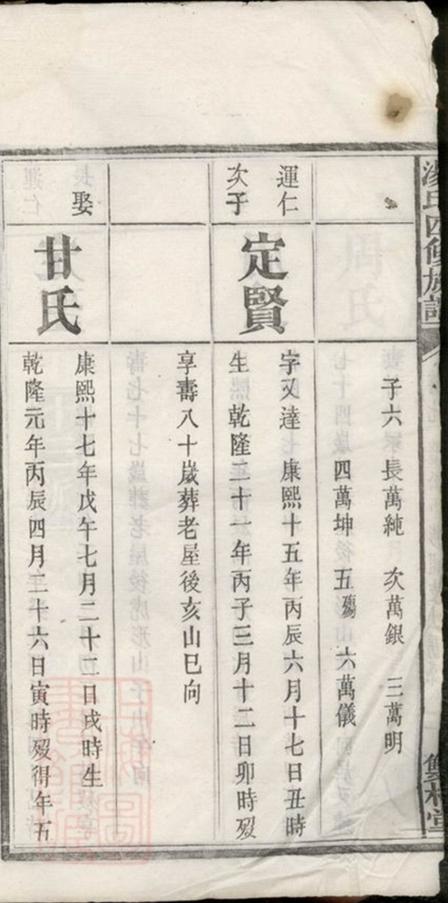 湯氏四修族譜
雙桂堂
子六 長萬純 次萬銀 三萬明
四萬坤 五殤 六萬儀
運仁
次子
定賢
字又達 康熙十五年丙辰六月十七日丑時
生 乾隆二十一年丙子三月十二日卯時歿
享壽八十歲葬老屋後亥山巳向
娶
甘氏
康熙十七年戊午七月二十二日戌時生
乾隆元年丙辰四月二十六日寅時歿得年五